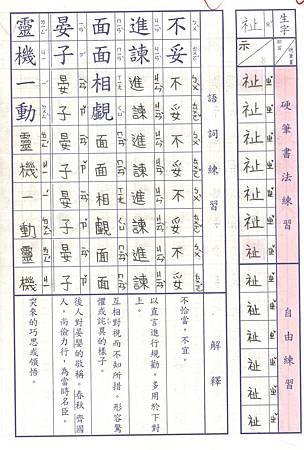 生字
祉
示
硬筆書法練習
祉
祉
祉
祉
祉
祉
自由練習
祉
祉
祉
祉
祉
語詞練習
解釋
不妥
不妥
不妥
不妥
不妥
不恰當,不宜。
進諫
進諫
進諫
進諫
進諫
以直言進行規勸。多用於下對上。
面面相覷
面面相覷
面面相覷
互相對視而不知所措。形容驚懼或詫異的樣子。
晏子
晏子
晏子
晏子
晏子
後人對晏嬰的敬稱。春秋齊國人,尚儉力行,為當時名臣。
靈機一動
靈機一動
靈機
突來的巧思或領悟。